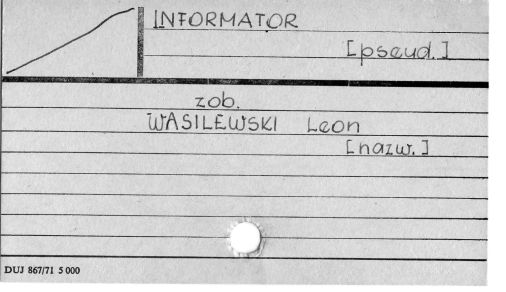 INFORMATOR
[pseud.]
zob.
WASILEWSKI Leon
[nazw.]
DUJ 867/71 5 000